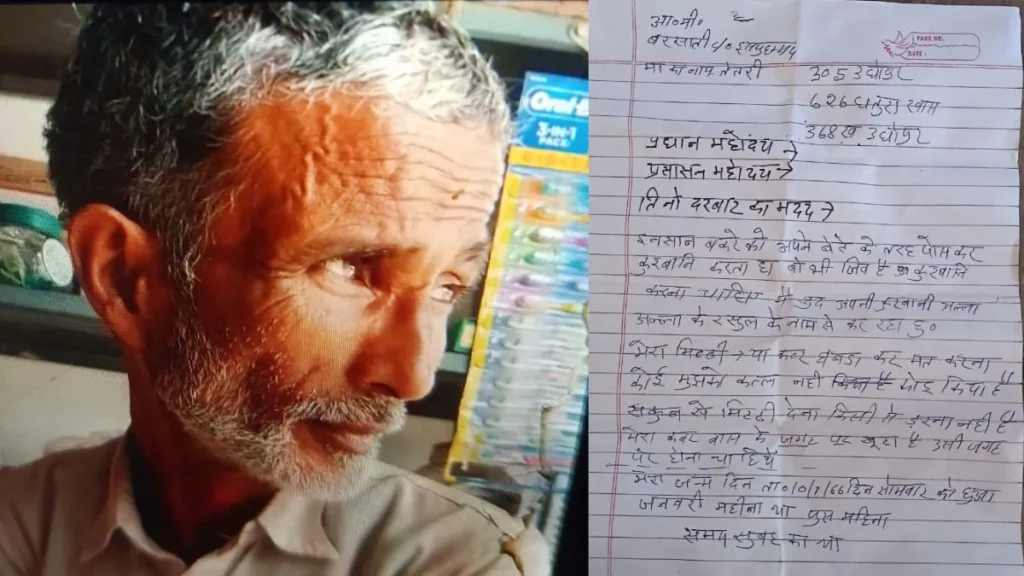 Oral-B
3-IN-1
PACK
PAGE NO.
DATE :
आ०मी०
बरसाती
मा स नाम तेतरी
305 उधोपुर
626 खास
368 ख उधोपुर
प्रधान महोदय →
प्रसासन महोदय →
तिनो दरबार का मदद →
इनसान बकरे को अपने बेटे की तरह पोस कर
कुरबानि करता है वो भी जिव है कुरबानि
करना चाहिए मै खुद अपनी कुरबानी अल्ला
अल्ला के रसुल के नाम से कर रहा हु०
मेरा मिटटी → या कबर कर मत करना
कोई मुझको कत्ल नही किया है
सकुन से मिटटी देना किसी से डरना नही है
मेरा कबर के जगह पर खूटा है उसी जगह
पर होना चाहिये
मेरा जन्म दिन ता०10/1/66 दिन सोमवार को हुआ
जनवरी महीना था पुस महिना
समय सुबह का था